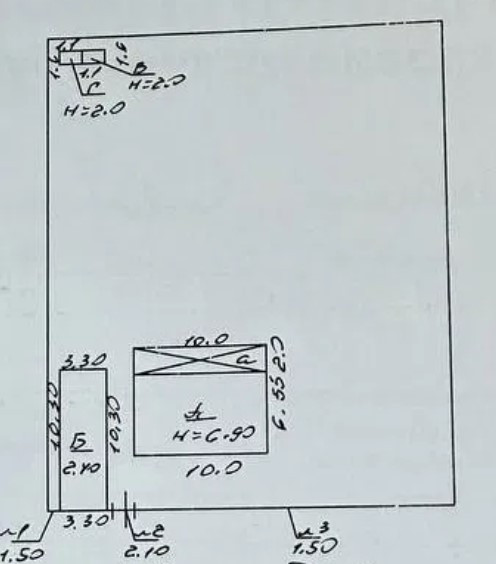 1.1
1.6
1.6
1.1
В
H=2.0
Г
H=2.0
10.0
2.0
а
3.30
6.55
10.30
10.30
А
H=6.90
Б
2.40
10.0
3.30
№1
1.50
№2
2.10
№3
1.50